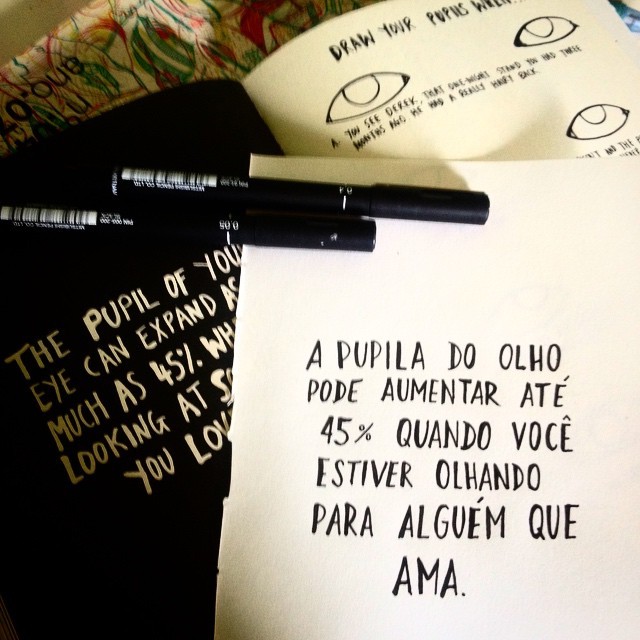 DRAW YOUR PUPILS WHEN...
A YOU SEE DEREK, THAT ONE-NIGHT STAND YOU HAD THREE
MONTHS AGO. HE HAD A REALLY HAIRY BACK.
0.2
0.05
THE PUPIL OF YOU
EYE CAN EXPAND AS
MUCH AS 45% WH
LOOKING AT SO
YOU LOV
A PUPILA DO OLHO
PODE AUMENTAR ATÉ
45% QUANDO VOCÊ
ESTIVER OLHANDO
PARA ALGUÉM QUE
AMA.